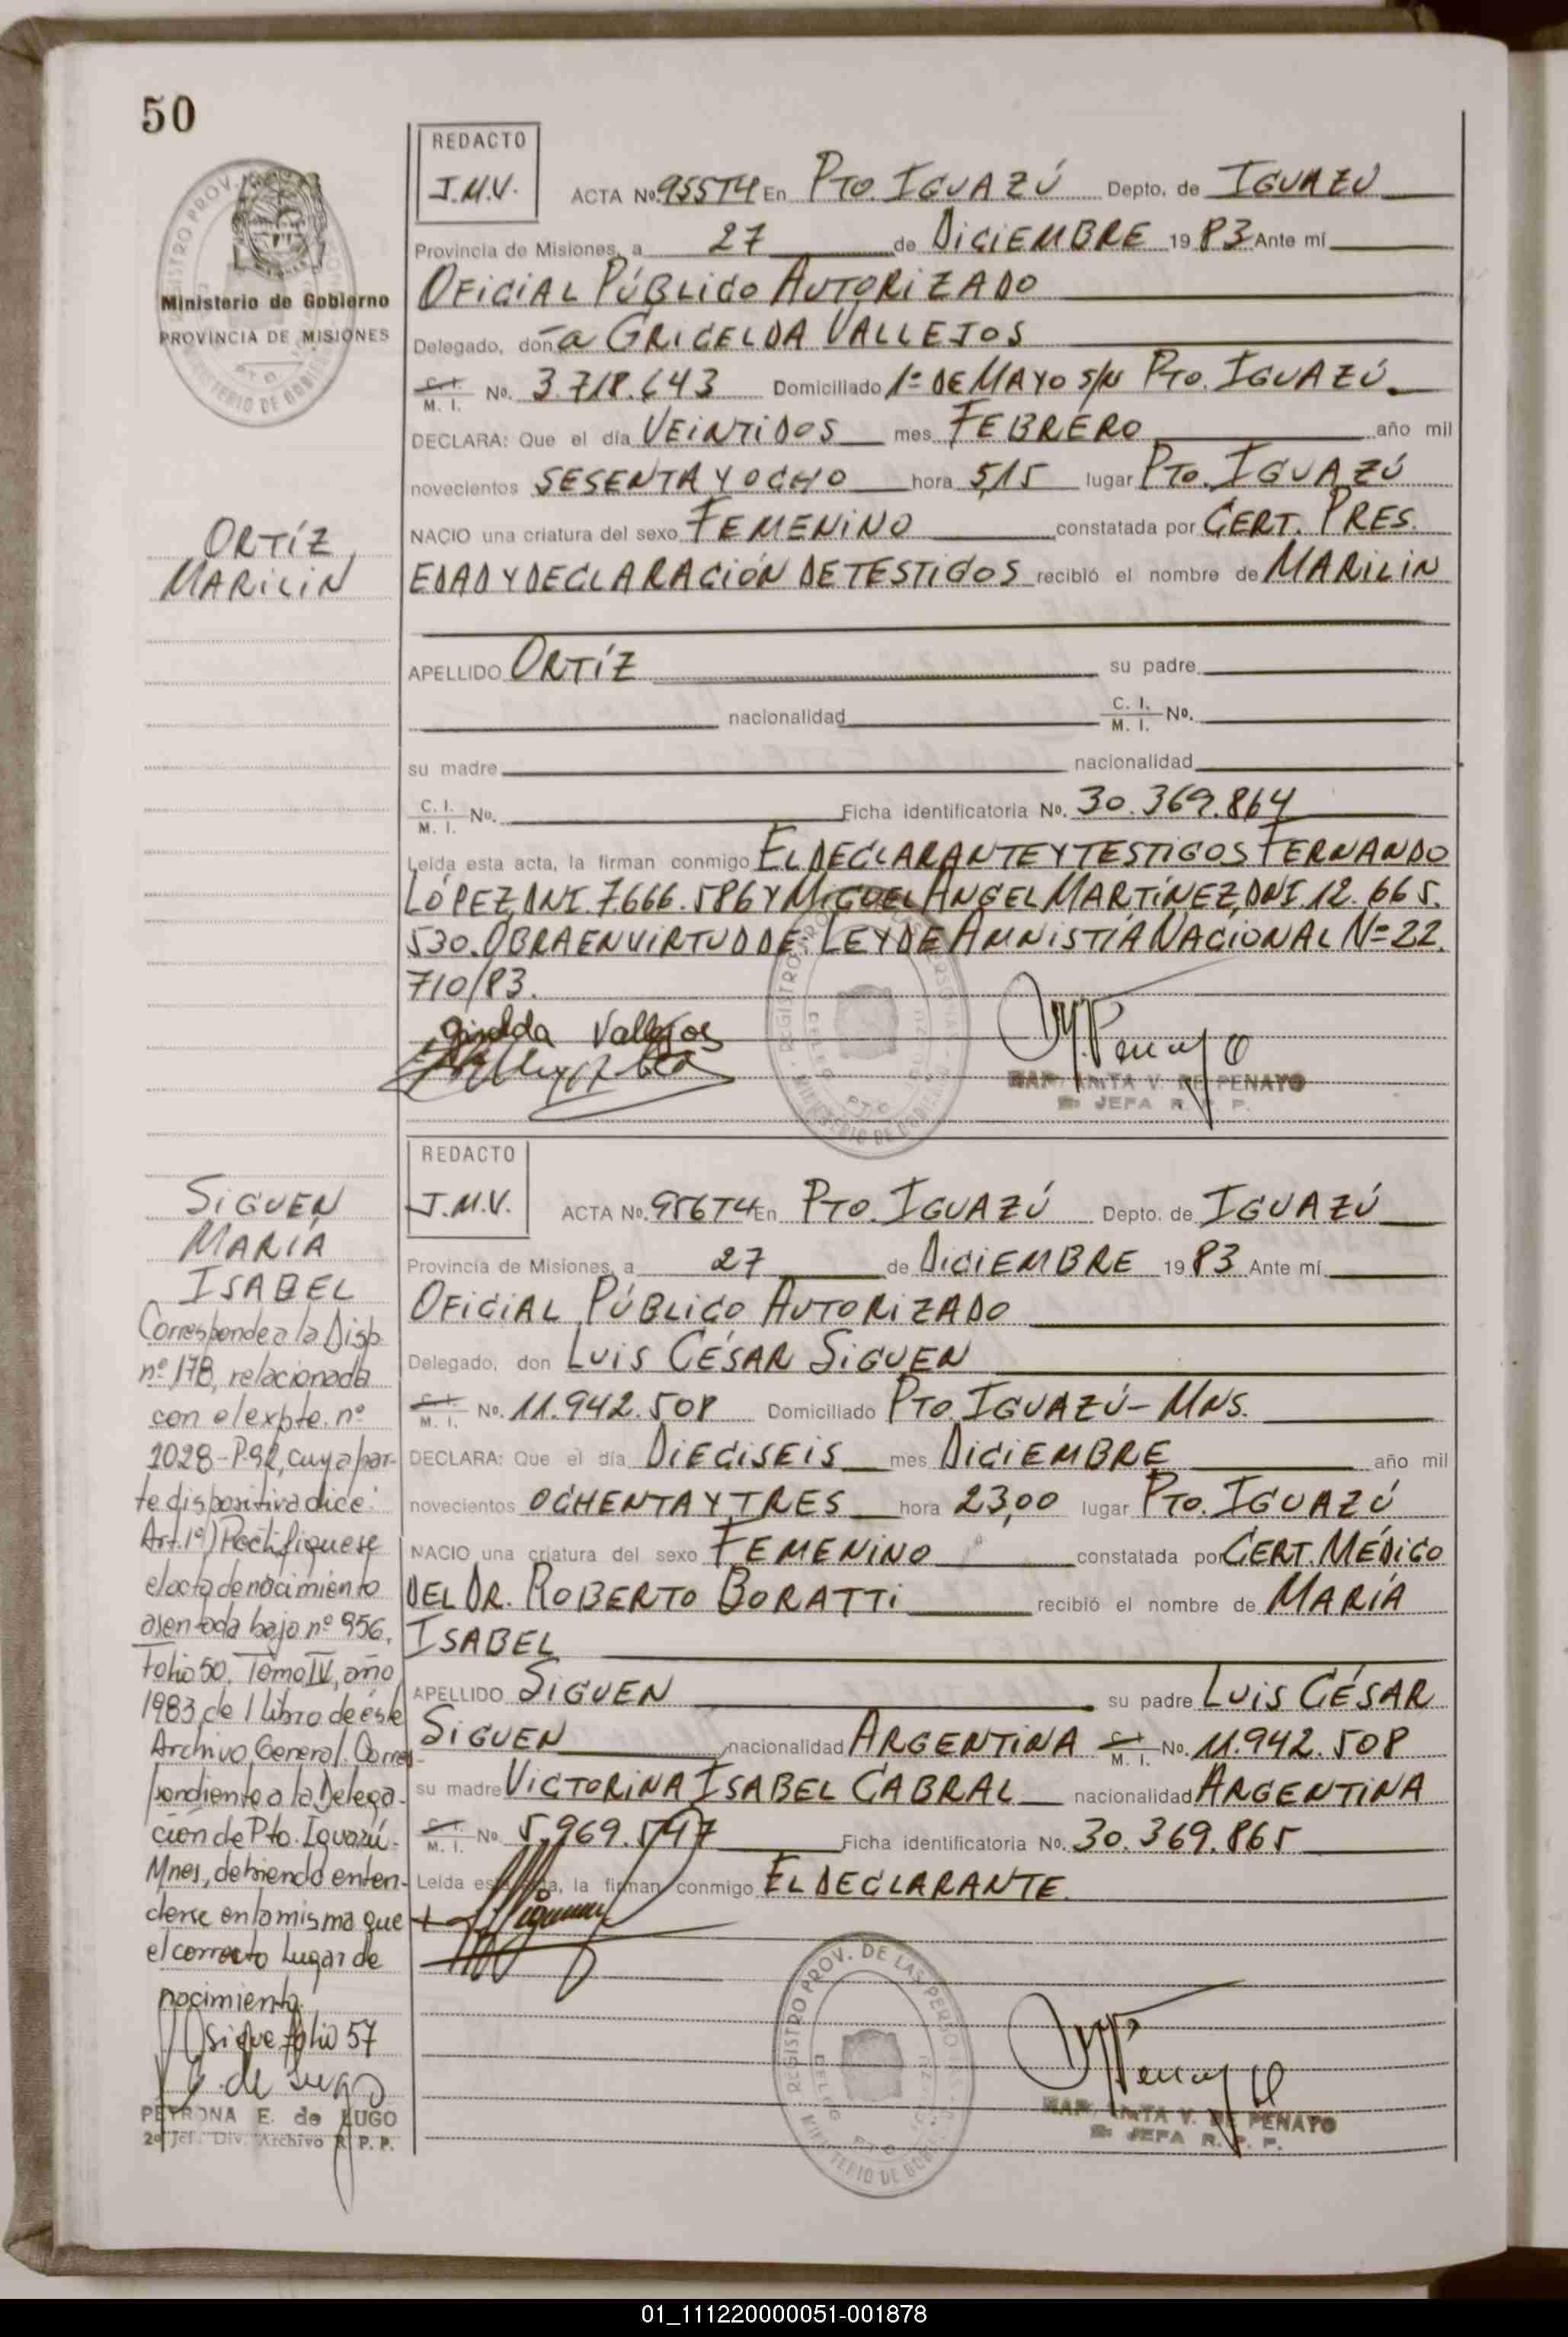 50
REDACTO
J.M.V.
ACTA No. 955T4 En PTO. IGUAZÚ Depto. de IGUAZÚ
Provincia de Misiones, a 27 de DICIEMBRE 19 83 Ante mí
OFICIAL PÚBLICO AUTORIZADO
Delegado, doña GRICELDA VALLEJOS
C. I. M. I. No. 3.718.643 Domiciliado 1º DE MAYO S/N PTO. IGUAZÚ.
DECLARA: Que el día VEINTIDOS mes FEBRERO año mil
novecientos SESENTA Y OCHO hora 5,15 lugar PTO. IGUAZÚ
NACIO una criatura del sexo FEMENINO constatada por CERT. PRES.
EDAD Y DECLARACIÓN DE TESTIGOS recibió el nombre de MARILIN
APELLIDO ORTÍZ su padre
nacionalidad C. I. M. I. No.
su madre nacionalidad
C. I. M. I. No. Ficha identificatoria No. 30.369.864
Leída esta acta, la firman conmigo EL DECLARANTE Y TESTIGOS FERNANDO
LÓPEZ, DNI. 7.666.586 Y MIGUEL ANGEL MARTÍNEZ, DNI. 12.665.
530. OBRA EN VIRTUD DE LEY DE AMNISTÍA NACIONAL Nº 22.
710/83.
Vallejos
MAR. ANITA V. DE PENAYO
JEFA R. P. P.
Ministerio de Gobierno
PROVINCIA DE MISIONES
ORTÍZ,
MARILIN
REDACTO
J.M.V.
ACTA No. 956T4 En PTO. IGUAZÚ Depto. de IGUAZÚ
Provincia de Misiones, a 27 de DICIEMBRE 19 83 Ante mí
OFICIAL PÚBLICO AUTORIZADO
Delegado, don LUIS CÉSAR SIGUEN
C. I. M. I. No. 11.942.508 Domiciliado PTO. IGUAZÚ - MNS.
DECLARA: Que el día DIECISEIS mes DICIEMBRE año mil
novecientos OCHENTA Y TRES hora 23,00 lugar PTO. IGUAZÚ
NACIO una criatura del sexo FEMENINO constatada por CERT. MÉDICO
DEL DR. ROBERTO BORATTI recibió el nombre de MARÍA
ISABEL
APELLIDO SIGUEN su padre LUIS CÉSAR
SIGUEN nacionalidad ARGENTINA C. I. M. I. No. 11.942.508
su madre VICTORINA ISABEL CABRAL nacionalidad ARGENTINA
C. I. M. I. No. 5.969.547 Ficha identificatoria No. 30.369.865
Leída esta acta, la firman conmigo EL DECLARANTE.
REGISTRO PROV. DE LAS PERSONAS
MINISTERIO DE GOBIERNO
MAR. ANITA V. DE PENAYO
JEFA R. P. P.
SIGUEN
MARÍA
ISABEL
Corresponde a la Disp.
nº 178, relacionada
con el expte. nº
1028-P-92, cuya par-
te dispositiva dice:
Art. 1º) Rectifíquese
el acta de nacimiento
asentada bajo nº 956,
Folio 50, Tomo IV, año
1983, de l libro de éste
Archivo General. Corres-
pondiente a la Delega-
ción de Pto. Iguazú -
Mnes, debiendo enten-
derse en la misma que
el correcto lugar de
nacimiento
Sigue folio 57
PETRONA E. de LUGO
2º Jef. Div. Archivo R. P. P.
01_111220000051-001878